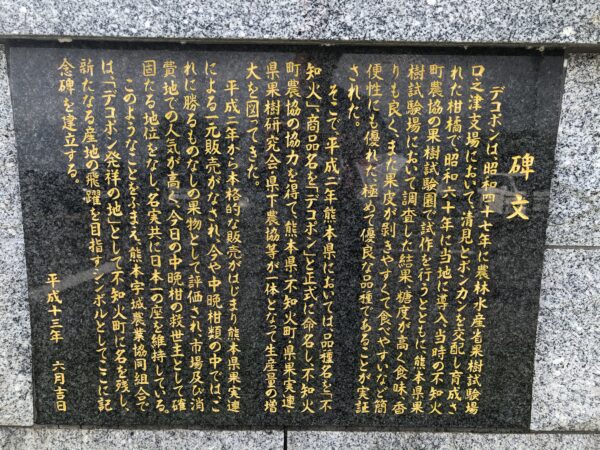 碑文
デコポンは、昭和四十七年に農林水産省果樹試験場
口之津支場において、清見とポンカンを交配し育成さ
れた柑橘で、昭和六十年に当地に導入、当時の不知火
町農協の果樹試験園で試作を行うとともに、熊本県果
樹試験場において調査した結果、糖度が高く食味、香
りも良く、また果皮が剥きやすくて食べやすいなど簡
便性にも優れた、極めて優良な品種であることが実証
された。
そこで、平成二年熊本県においては、品種名を「不
知火」、商品名を「デコポン」と正式に命名し、不知火
町農協の協力を得て、熊本県・不知火町・県果実連
県果樹研究会・県下農協等が一体となって生産量の増
大を図ってきた。
平成二年から本格的な販売がはじまり熊本県果実連
による一元販売がなされ、今や中晩柑類の中では、こ
れに勝るものなしの果物として評価され、市場及び消
費地での人気が高く、今日の中晩柑の救世主として確
固たる地位をなし、名実共に日本一の座を維持している。
このようなことをふまえ、熊本宇城農業協同組合で
は、「デコポン発祥の地」として不知火町に名を残し、
新たなる産地の飛躍を目指すシンボルとしてここに記
念碑を建立する。
平成十三年 六月吉日